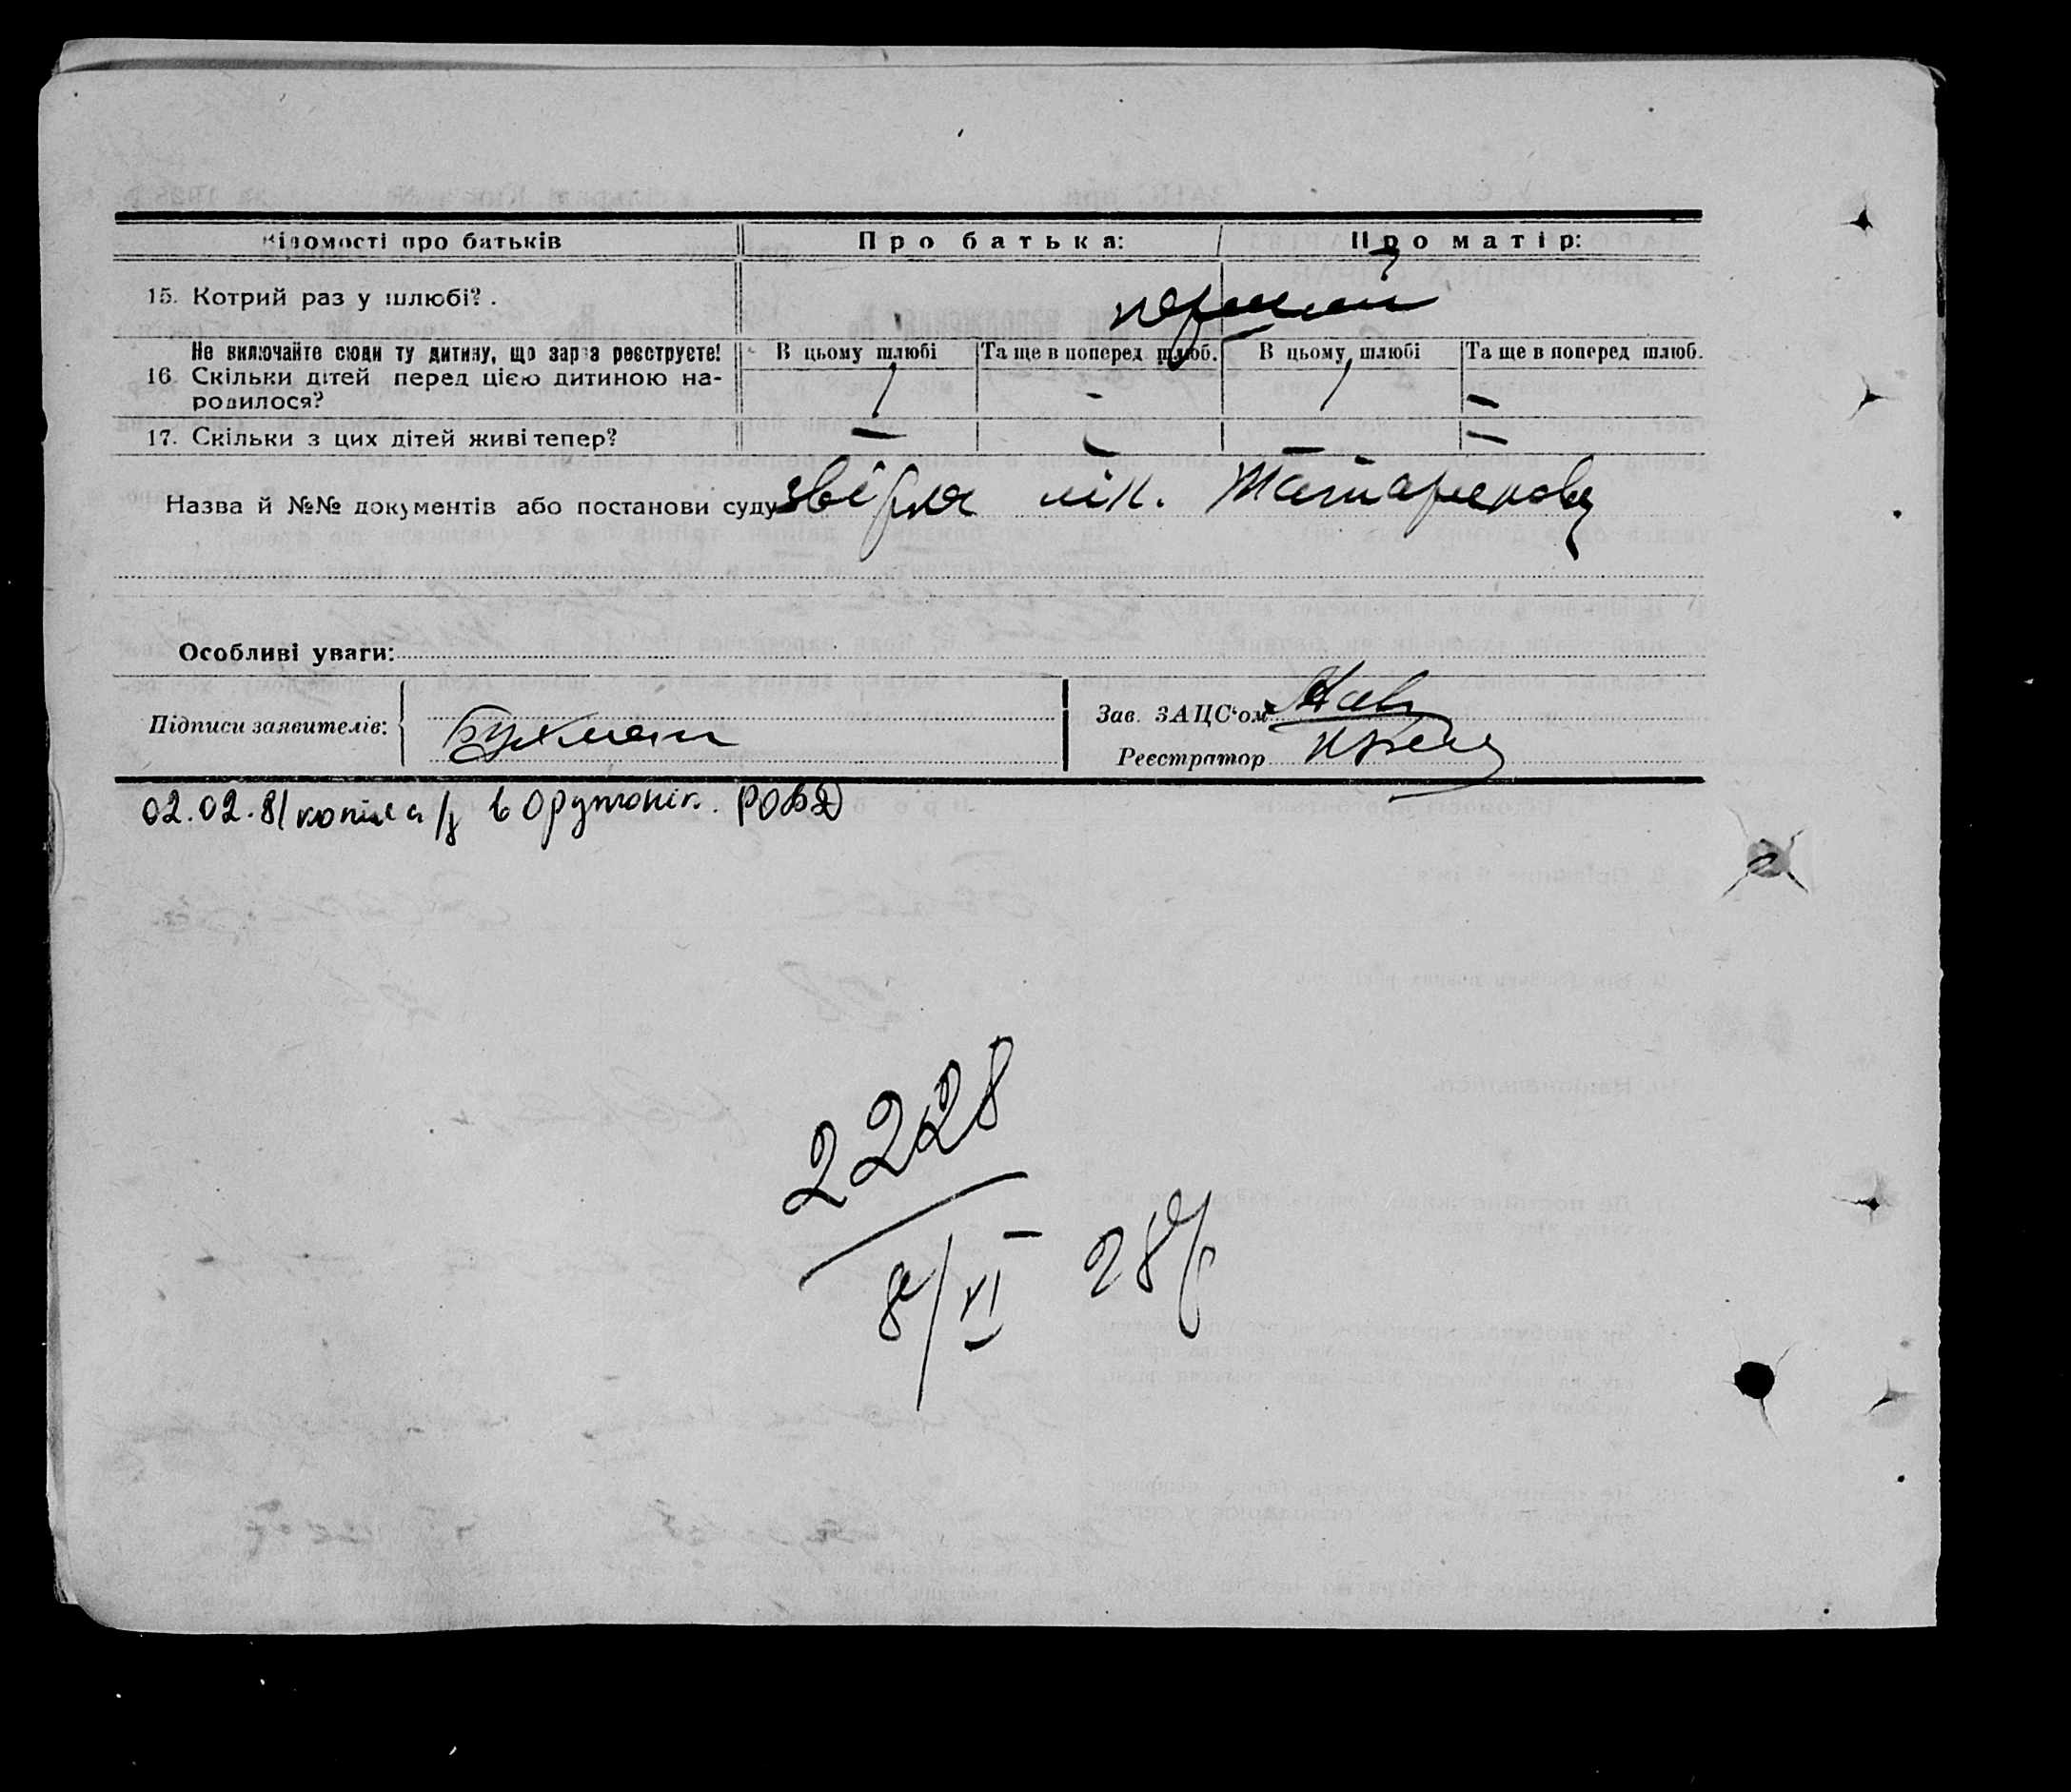 Відомості про батьків Про батька: Про матір:
15. Котрий раз у шлюбі? . перший
Не включайте сюди ту дитину, що зараз реєструєте! В цьому шлюбі Та ще в поперед. шлюб. В цьому шлюбі Та ще в поперед шлюб.
16. Скільки дітей перед цією дитиною на-
родилося? 1 - 1 -
17. Скільки з цих дітей живі тепер? - - - -
Назва й №№ документів або постанови суду
Особливі уваги:
Підписи заявителів: Бухман
Зав. ЗАЦС'ом
Реєстратор
02.02.81
2228
8/VI - 28